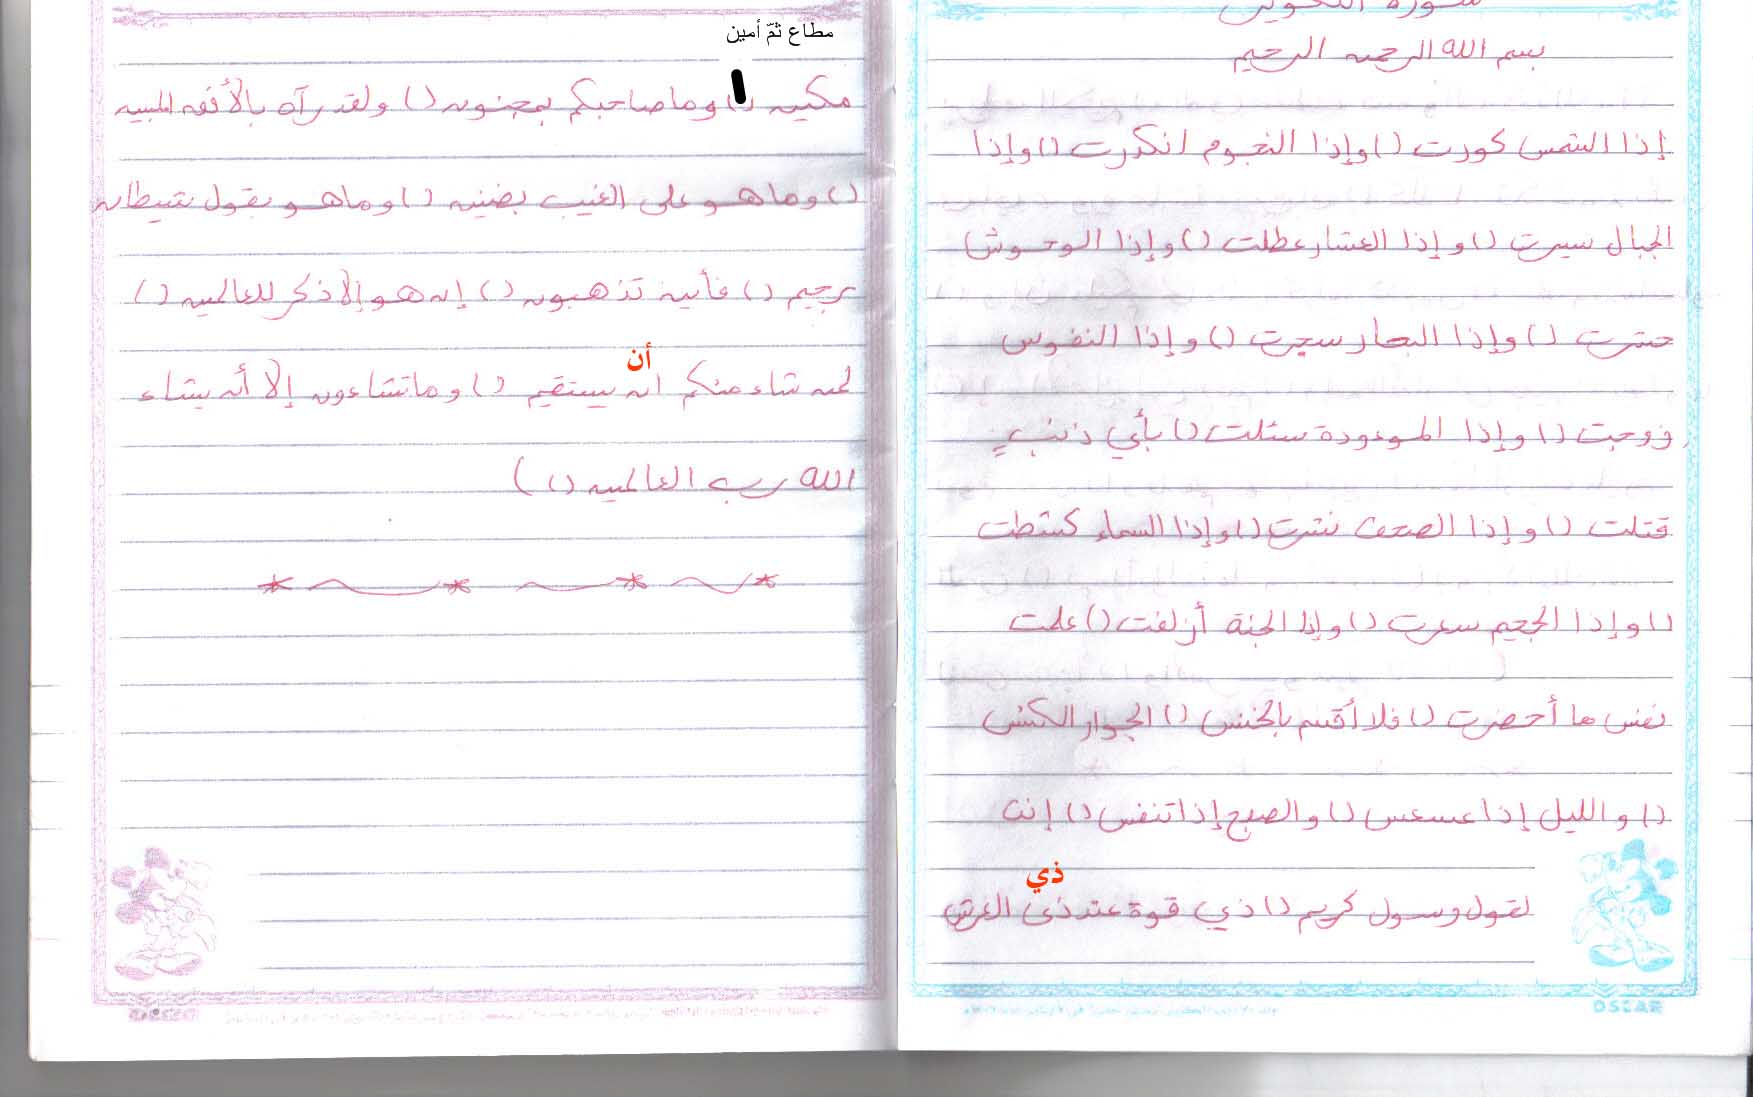 سورة التكوير
بسم الله الرحمن الرحيم
إذا الشمس كورت () وإذا النجوم انكدرت () وإذا
الجبال سيرت () وإذا العشار عطلت () وإذا الوحوش
حشرت () وإذا البحار سجرت () وإذا النفوس
زوجت () وإذا الموءودة سئلت () بأي ذنبٍ
قتلت () وإذا الصحف نشرت () وإذا السماء كشطت
() وإذا الجحيم سعرت () وإذا الجنة أزلفت () علمت
نفس ما أحضرت () فلا أقسم بالخنس () الجوار الكنس
() والليل إذا عسعس () والصبح إذا تنفس () إنه
ذي
لقول رسول كريم () ذي قوة عند ذى العرش
OSCAR
مطاع ثمّ أمين
مكين () وما صاحبكم بمجنون () ولقد رآه بالأفق المبين
() وما هو على الغيب بضنين () وما هو بقول شيطان
رجيم () فأين تذهبون () إن هو إلا ذكر للعالمين ()
أن
لمن شاء منكم ان يستقيم () وما تشاءون إلا أن يشاء
الله رب العالمين ()